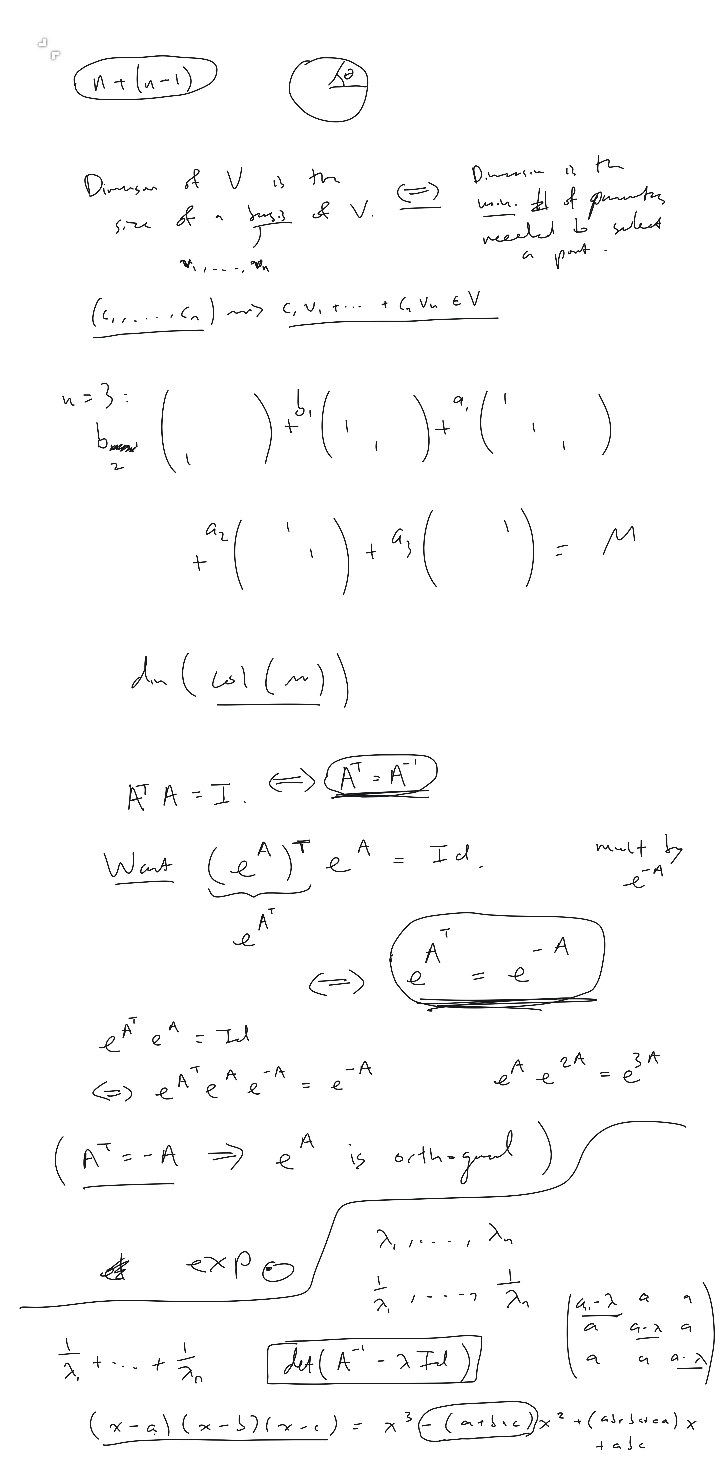 n + (n-1)
θ
Dimension of V is the size of a basis of V. ⟺ Dimension is the min. # of parameters needed to select a point.
v₁, ..., vₙ
(c₁, ..., cₙ) ⇝ c₁v₁ + ... + cₙvₙ ∈ V
n = 3:
b₂ ( 1 ) + b₁ ( 1 1 ) + a₁ ( 1 1 1 )
+ a₂ ( 1 1 ) + a₃ ( 1 ) = M
dim ( col (M) )
Aᵀ A = I. ⟺ Aᵀ = A⁻¹
Want (e^A)ᵀ e^A = Id. mult by e^{-A}
e^{Aᵀ}
⟺ e^{Aᵀ} = e^{-A}
e^{Aᵀ} e^A = Id
⟺ e^{Aᵀ} e^A e^{-A} = e^{-A} e^A e^{2A} = e^{3A}
( Aᵀ = -A ⟹ e^A is orthogonal )
exp
λ₁, ..., λₙ
1/λ₁, ..., 1/λₙ
a₁-λ a a
a a-λ a
a a a-λ
1/λ₁ + ... + 1/λₙ det(A⁻¹ - λ Id)
(x-a)(x-b)(x-c) = x³ -(a+b+c)x² + (ab+bc+ca)x
+ abc